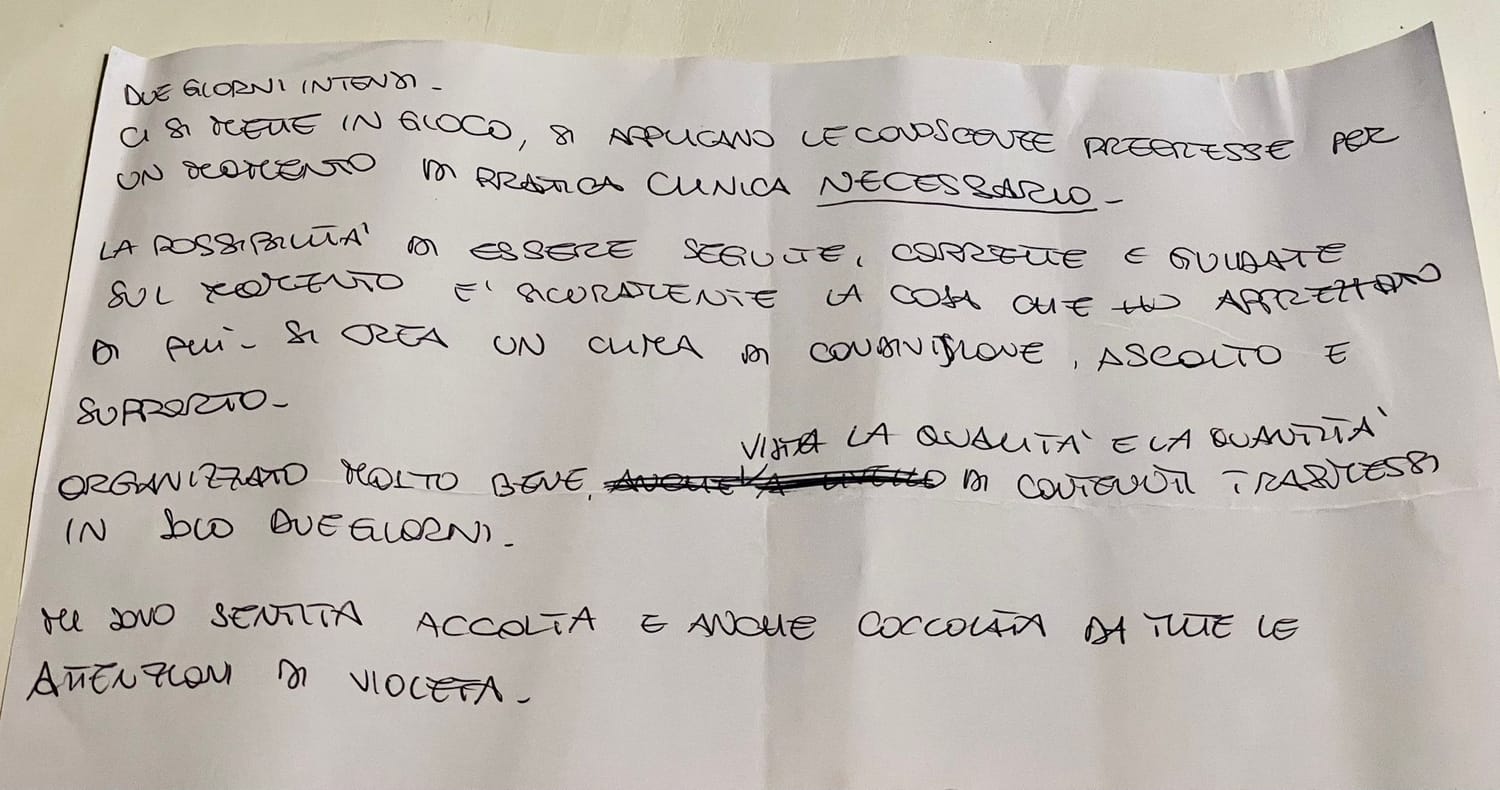 DUE GIORNI INTENSI -
CI SI METTE IN GIOCO, SI APPLICANO LE CONOSCENZE PREGRESSE PER
UN MOMENTO DI PRATICA CLINICA NECESSARIO -
LA POSSIBILITÀ DI ESSERE SEGUITE, CORRETTE E GUIDATE
SUL MOMENTO E' SICURAMENTE LA COSA CHE HO APPREZZATO
DI PIÙ - SI CREA UN CLIMA DI CONDIVISIONE, ASCOLTO E
SUPPORTO -
VISTA LA QUALITÀ E LA QUANTITÀ
ORGANIZZATO MOLTO BENE, ANCHE A LIVELLO DI CONTENUTI TRASMESSI
IN SOLO DUE GIORNI -
MI SONO SENTITA ACCOLTA E ANCHE COCCOLATA DA TUTTE LE
ATTENZIONI DI VIOLETA -